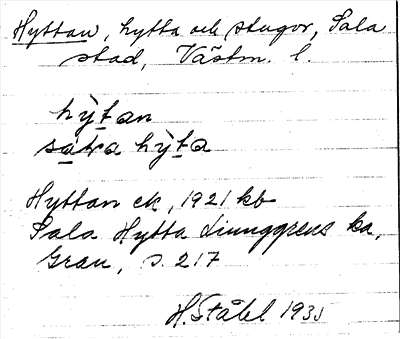 Hyttan, hytta och stugor, Sala
stad, Västm. l.
hỳtan
sátra hỳta
Hyttan ek, 1921 kb
Sala Hytta Liunggrens ka,
Gran, s. 217
H. Ståhl 1935